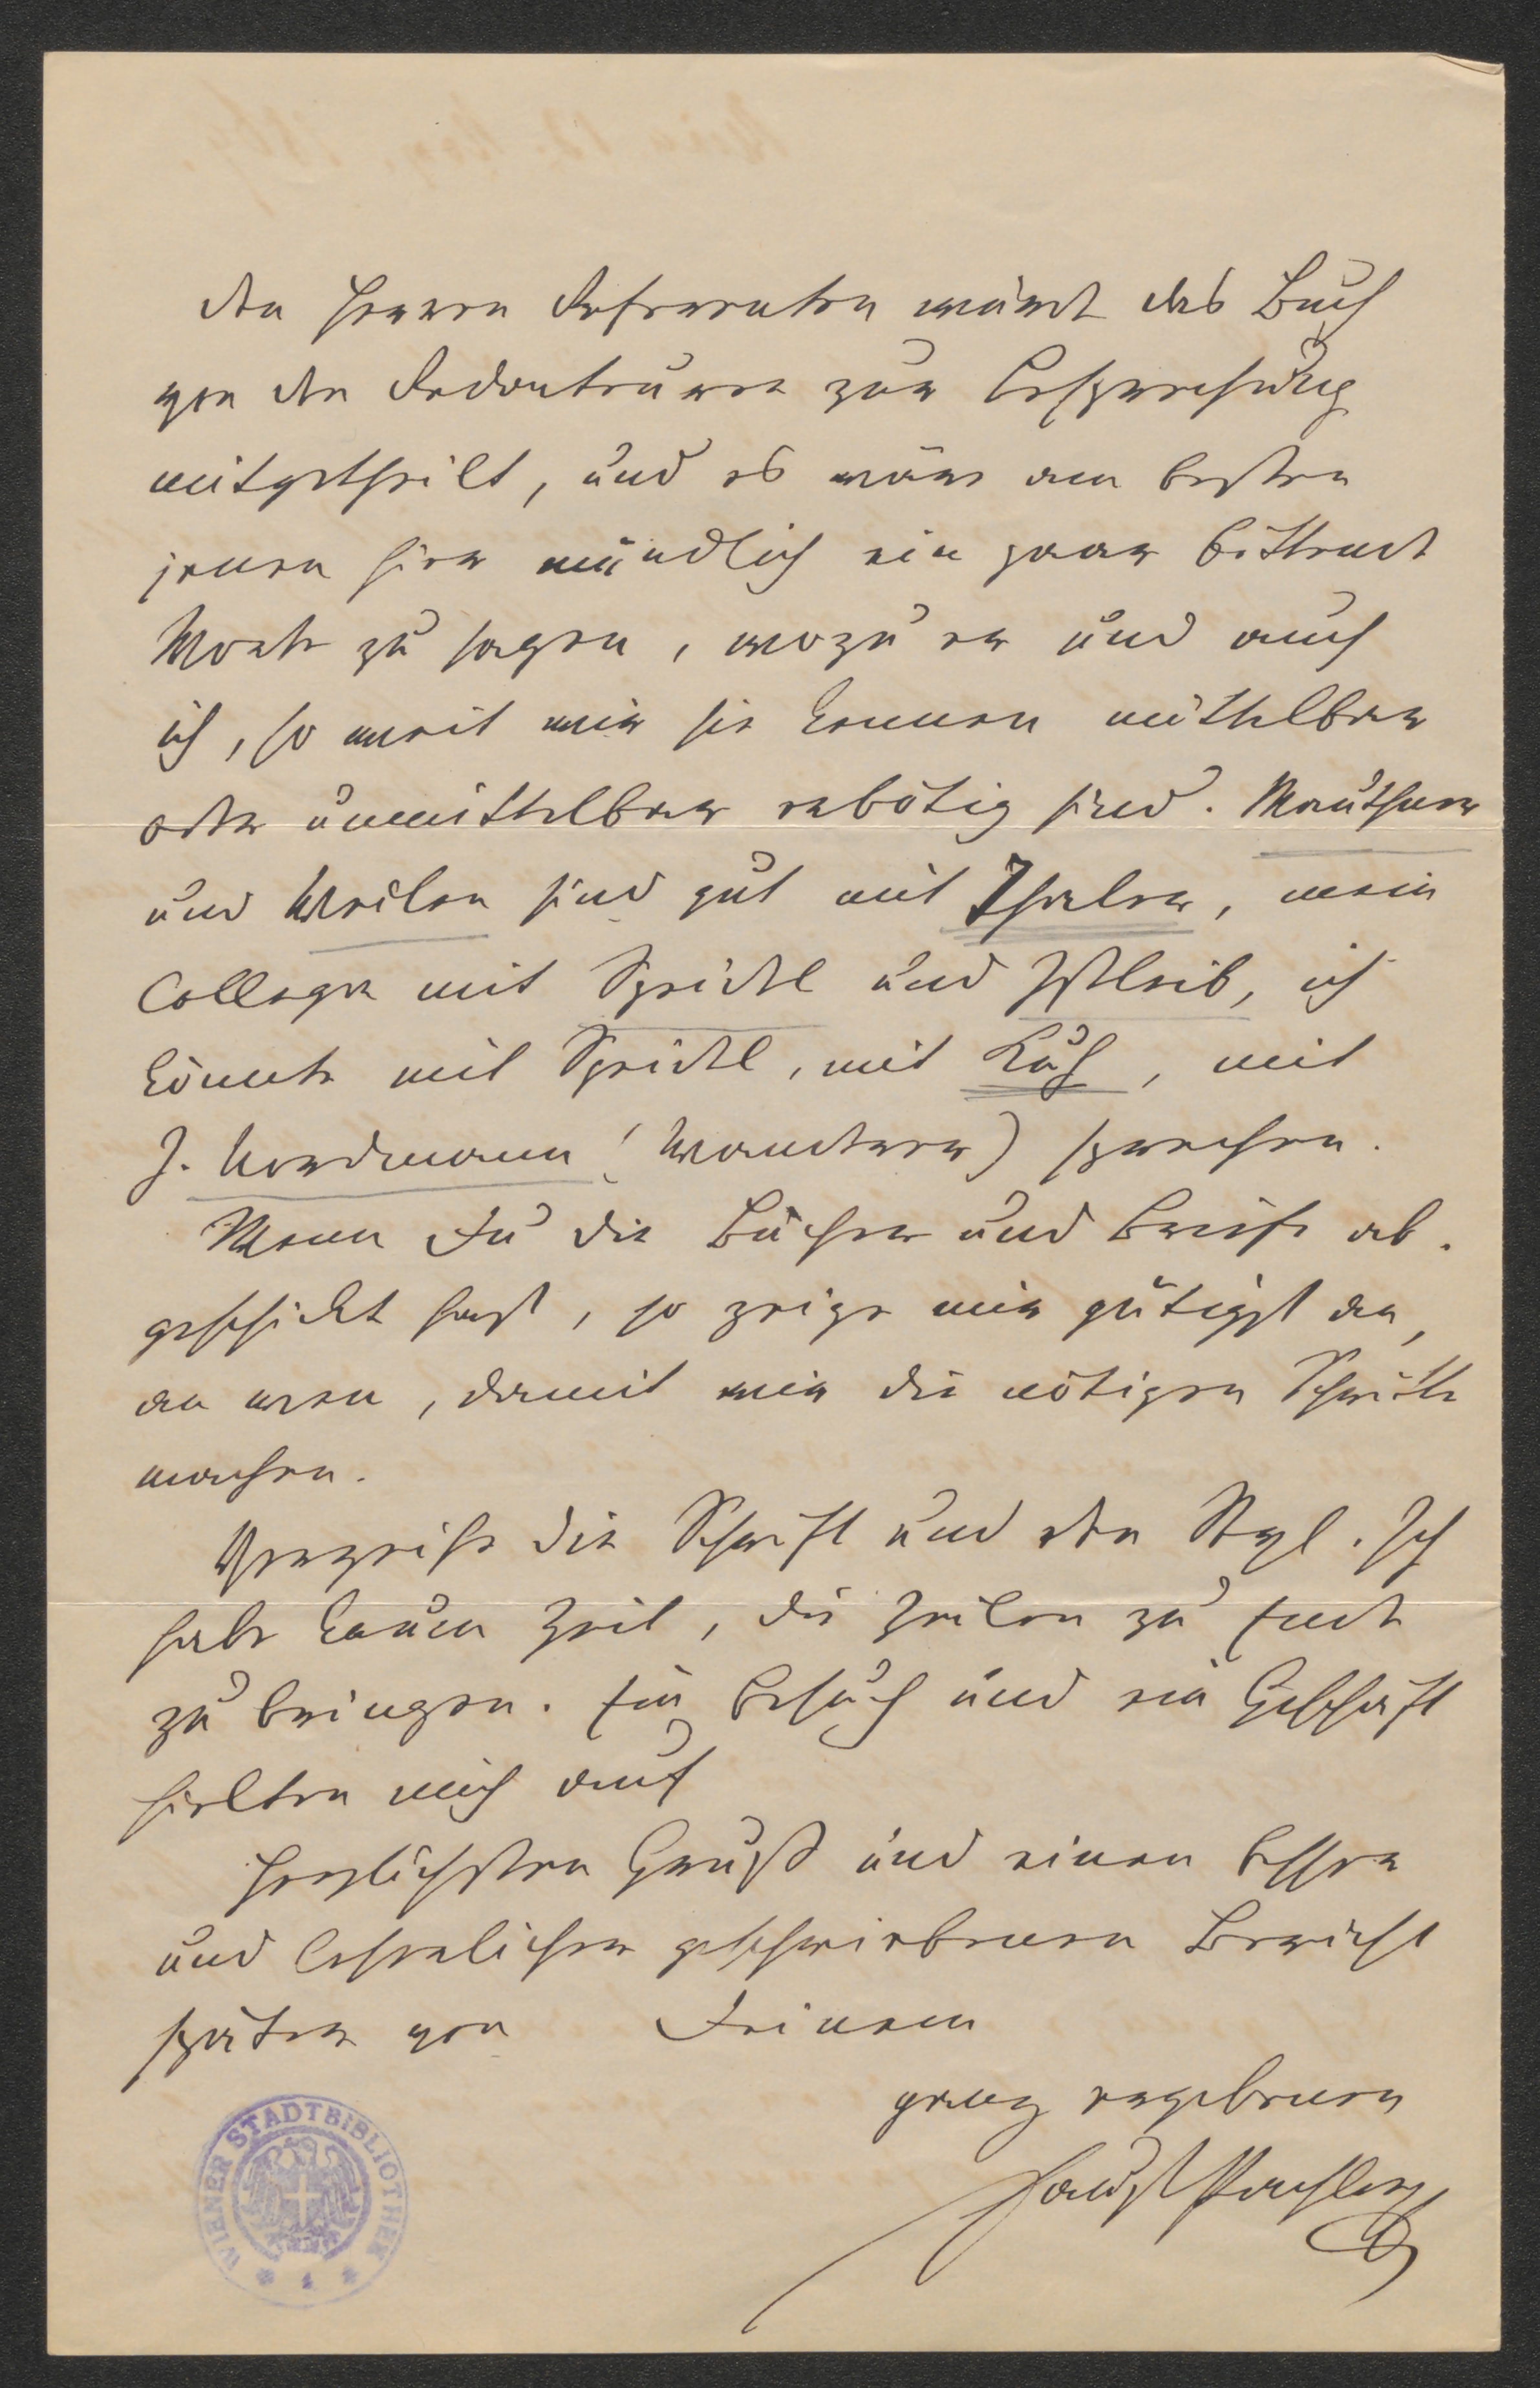 den Herren Referenten würde das Buch
von den Redakteuren zur Besprechung
mitgetheilt, und es wäre am besten
jenen hier mündlich ein paar bittende
Worte zu sagen, wozu er und auch
ich, so weit wir sie kennen mittelbar
oder unmittelbar erbötig sind. Mauthner
und Weilen sind gut mit Thaler, mein
College mit Speidl und Zetleib, ich
könnte mit Speidel, mit Kuh, mit
J. Nordmann (Wanderer) sprechen.
Wenn Du die Bücher und Briefe ab-
geschickt hast, so zeige mir gütigst an,
an wen, damit wir die nötigen Schritte
machen.
Verzeihe die Schrift und den Styl. Ich
habe kaum Zeit, die Zeilen zu Ende
zu bringen. Ein Besuch und ein Geschäft
hielten mich auf
Herzlichsten Gruß und einen bessern
und leserlicher geschriebenen Bericht
später von Deinem
ganz ergebenen
Faust Pachler
WIENER STADTBIBLIOTHEK